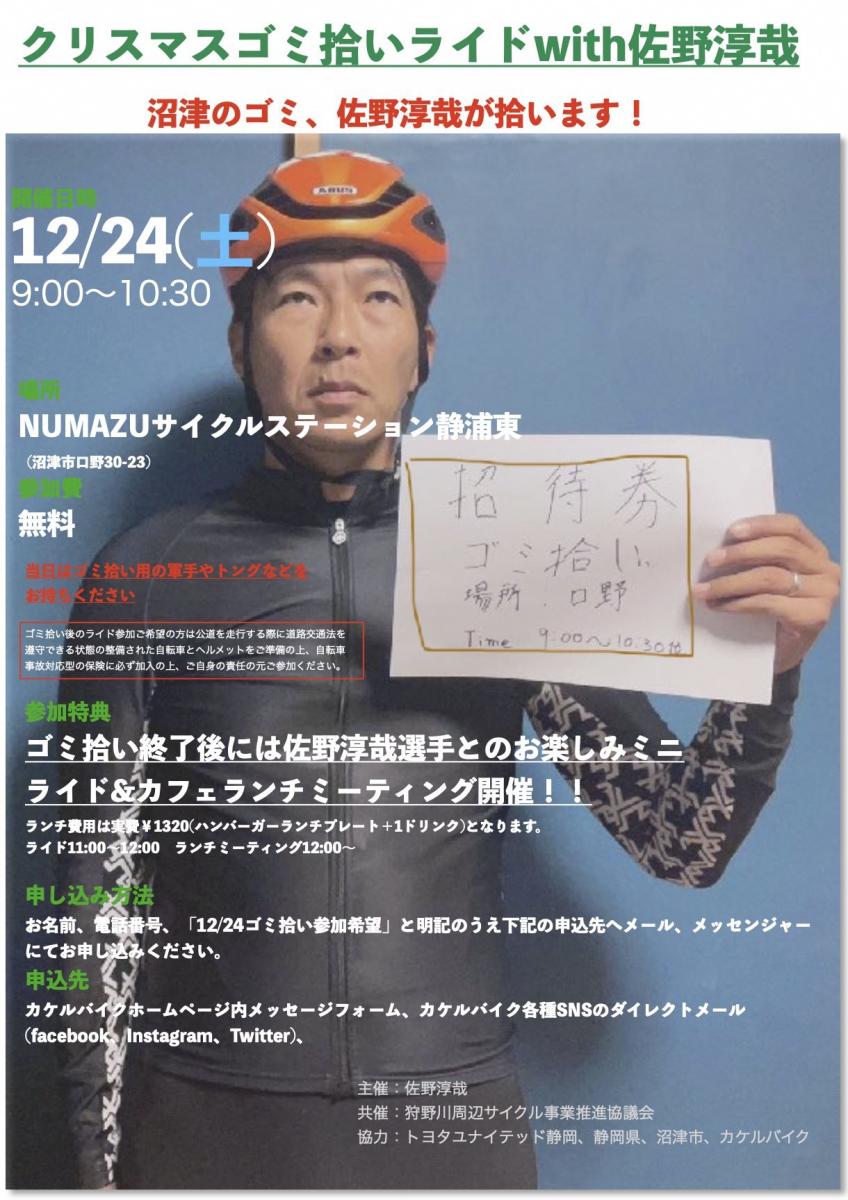 クリスマスゴミ拾いライドwith佐野淳哉
沼津のゴミ、佐野淳哉が拾います！
ABUS
開催日時
12/24(土)
9:00〜10:30
場所
NUMAZUサイクルステーション静浦東
（沼津市口野30-23）
参加費
無料
招待券
ゴミ拾い
場所．口野
Time 9:00〜10:30始
当日はゴミ拾い用の軍手やトングなどを
お持ちください
ゴミ拾い後のライド参加ご希望の方は公道を走行する際に道路交通法を
遵守できる状態の整備された自転車とヘルメットをご準備の上、自転車
事故対応型の保険に必ず加入の上、ご自身の責任の元ご参加ください。
参加特典
ゴミ拾い終了後には佐野淳哉選手とのお楽しみミニ
ライド&カフェランチミーティング開催！！
ランチ費用は実費￥1320(ハンバーガーランチプレート＋1ドリンク)となります。
ライド11:00〜12:00　ランチミーティング12:00〜
申し込み方法
お名前、電話番号、「12/24ゴミ拾い参加希望」と明記のうえ下記の申込先へメール、メッセンジャー
にてお申し込みください。
申込先
カケルバイクホームページ内メッセージフォーム、カケルバイク各種SNSのダイレクトメール
(facebook、Instagram、Twitter)、
主催：佐野淳哉
共催：狩野川周辺サイクル事業推進協議会
協力：トヨタユナイテッド静岡、静岡県、沼津市、カケルバイク